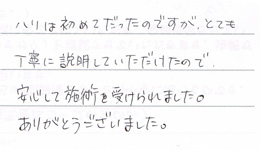 ハリは初めてだったのですが、とても
丁寧に説明していただけたので、
安心して施術を受けられました。
ありがとうございました。